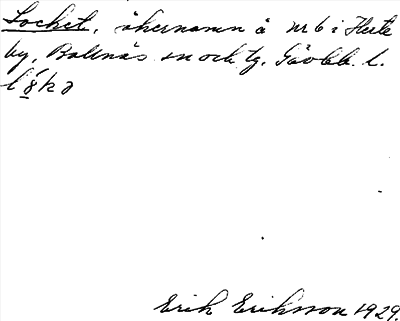 Locket, åkernamn å nr 6 i Herte
by, Bollnäs sn och tg. Gävleb. l.
Erik Eriksson 1929.